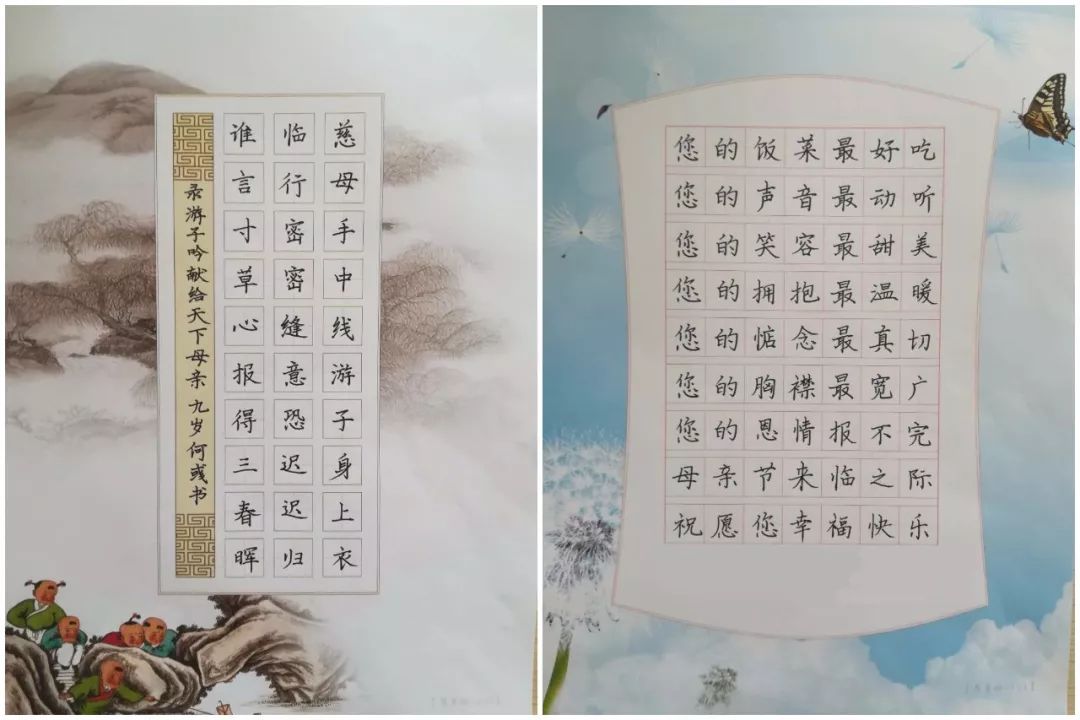 慈母手中线游子身上衣
临行密密缝意恐迟迟归
谁言寸草心报得三春晖
录游子吟献给天下母亲 九岁何彧书
您的饭菜最好吃
您的声音最动听
您的笑容最甜美
您的拥抱最温暖
您的惦念最真切
您的胸襟最宽广
您的恩情报不完
母亲节来临之际
祝愿您幸福快乐